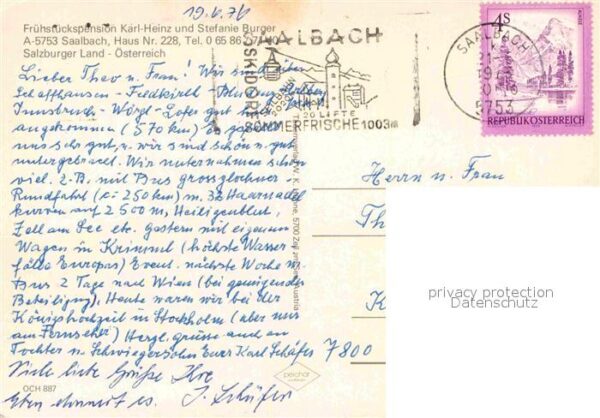 19.6.76
Frühstückspension Karl-Heinz und Stefanie Burger
A-5753 Saalbach, Haus Nr. 228, Tel. 0 65 86 / 7
Salzburger Land - Österreich
SAALBACH
SKIDORF
20 LIFTE
SOMMERFRISCHE 1003m
SAALBACH
5753
4S
REPUBLIK ÖSTERREICH
Lieber Theo u. Frau! Wir sind über
Schaffhausen - Feldkirch -
Innsbruck - Wörgl - Lofer gut hier
angekommen (570 km) Es gefällt
uns sehr gut u. wir sind schön u. gut
untergebracht. Wir unternahmen schon
viel. z.B. mit Bus grossglockner-
Rundfahrt (c: 250 km) m. 32 Haarnadel
kurven auf 2500 m, Heiligenblut,
Zell am See etc. gestern mit eigenem
Wagen in Krimml (höchste Wasser
fälle Europas) Event. nächste Woche m.
Bus 2 Tage nach Wien (bei genügender
Beteiligung). Heute waren wir bei der
Königshochzeit in Stockholm (aber nur
am Fernseher) Herzl. grüsse auch an
Tochter u. Schwiegersohn Euer Karl Schäfer 7800
Viele liebe Grüße Ihre
I. Schäfer
Herrn u. Frau
Th
K
privacy protection
Datenschutz
OCH 887